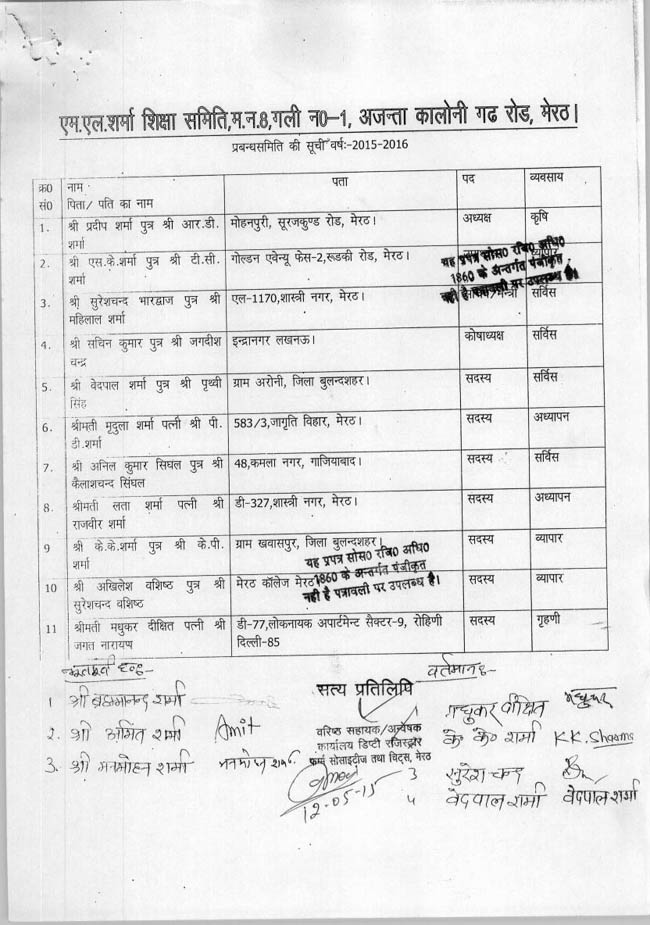 एम.एल.शर्मा शिक्षा समिति,म.न.8,गली न0-1, अजन्ता कालोनी गढ रोड, मेरठ।
प्रबन्धसमिति की सूची वर्षः-2015-2016
क्र0 सं0 नाम पिता/ पति का नाम पता पद व्यवसाय
1. श्री प्रदीप शर्मा पुत्र श्री आर.डी. मोहनपुरी, सूरजकुण्ड रोड, मेरठ। अध्यक्ष कृषि
शर्मा
2. श्री एस.के.शर्मा पुत्र श्री टी.सी. गोल्डन एवेन्यू फेस-2,रूडकी रोड, मेरठ। व्यापार
शर्मा
यह प्रपत्र सोस० रजि० अधि०
1860 के अन्तर्गत पंजीकृत
नही है पत्रावली पर उपलब्ध है।
3. श्री सुरेशचन्द भारद्वाज पुत्र श्री एल-1170,शास्त्री नगर, मेरठ। सर्विस
महिलाल शर्मा
4. श्री सचिन कुमार पुत्र श्री जगदीश इन्द्रानगर लखनऊ। कोषाध्यक्ष सर्विस
चन्द्र
5. श्री वेदपाल शर्मा पुत्र श्री पृथ्वी ग्राम अरोनी, जिला बुलन्दशहर। सदस्य सर्विस
सिंह
6. श्रीमती मृदुला शर्मा पत्नी श्री पी. 583/3,जागृति विहार, मेरठ। सदस्य अध्यापन
डी.शर्मा
7. श्री अनिल कुमार सिघल पुत्र श्री 48,कमला नगर, गाजियाबाद। सदस्य सर्विस
कैलाशचन्द सिंघल
8. श्रीमती लता शर्मा पत्नी श्री डी-327,शास्त्री नगर, मेरठ। सदस्य अध्यापन
राजवीर शर्मा
9 श्री के.के.शर्मा पुत्र श्री के.पी. ग्राम खवासपुर, जिला बुलन्दशहर। सदस्य व्यापार
शर्मा
यह प्रपत्र सोस० रजि० अधि०
1860 के अन्तर्गत पंजीकृत
नही है पत्रावली पर उपलब्ध है।
10 श्री अखिलेश वशिष्ठ पुत्र श्री मेरठ कॉलेज मेरठ सदस्य व्यापार
सुरेशचन्द वशिष्ट
11 श्रीमती मधुकर दीक्षित पत्नी श्री डी-77,लोकनायक अपार्टमेन्ट सैक्टर-9, रोहिणी सदस्य गृहणी
जगत नारायण दिल्ली-85
1 श्री ब्रह्मानन्द शर्मा
2. श्री अमित शर्मा Amit
3. श्री मनमोहन शर्मा
सत्य प्रतिलिपि
वरिष्ठ सहायक/अन्वेषक
कार्यालय डिप्टी रजिस्ट्रार
फर्म्स सोसाइटीज तथा चिट्स, मेरठ
12-05-15
वर्तमान
मधुकर दीक्षित मधुकर
के० के० शर्मा K.K. Sharma
3 सुरेश चन्द
4 वेदपाल शर्मा वेदपाल शर्मा